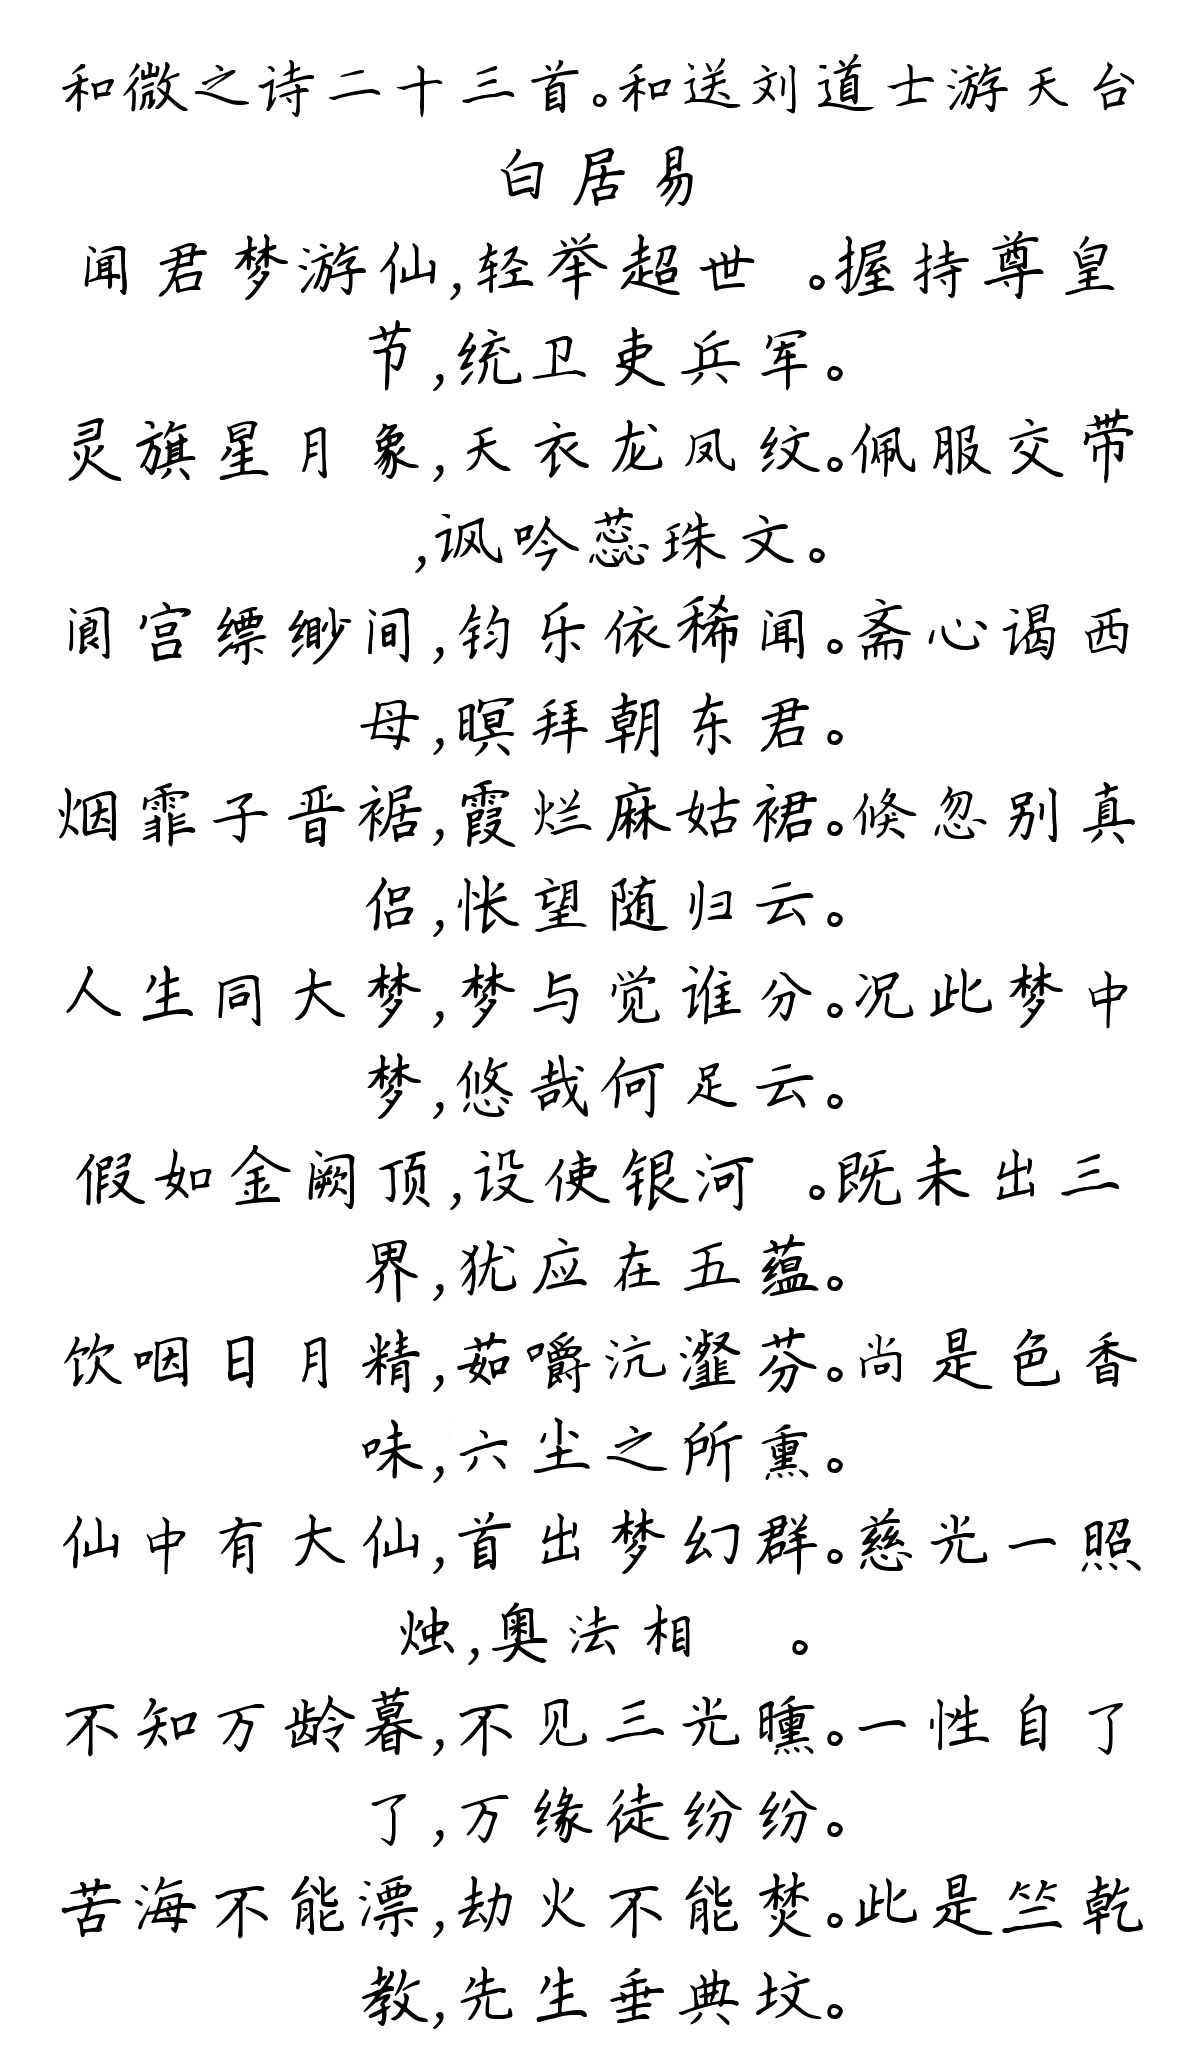 和微之诗二十三首。和送刘道士游天台
白居易
闻君梦游仙,轻举超世 。握持尊皇
节,统卫吏兵军。
灵旗星月象,天衣龙凤纹。佩服交带
,讽吟蕊珠文。
阆宫缥缈间,钧乐依稀闻。斋心谒西
母,暝拜朝东君。
烟霏子晋裾,霞烂麻姑裙。倏忽别真
侣,怅望随归云。
人生同大梦,梦与觉谁分。况此梦中
梦,悠哉何足云。
假如金阙顶,设使银河 。既未出三
界,犹应在五蕴。
饮咽日月精,茹嚼沆瀣芬。尚是色香
味,六尘之所熏。
仙中有大仙,首出梦幻群。慈光一照
烛,奥法相 。
不知万龄暮,不见三光曛。一性自了
了,万缘徒纷纷。
苦海不能漂,劫火不能焚。此是竺乾
教,先生垂典坟。